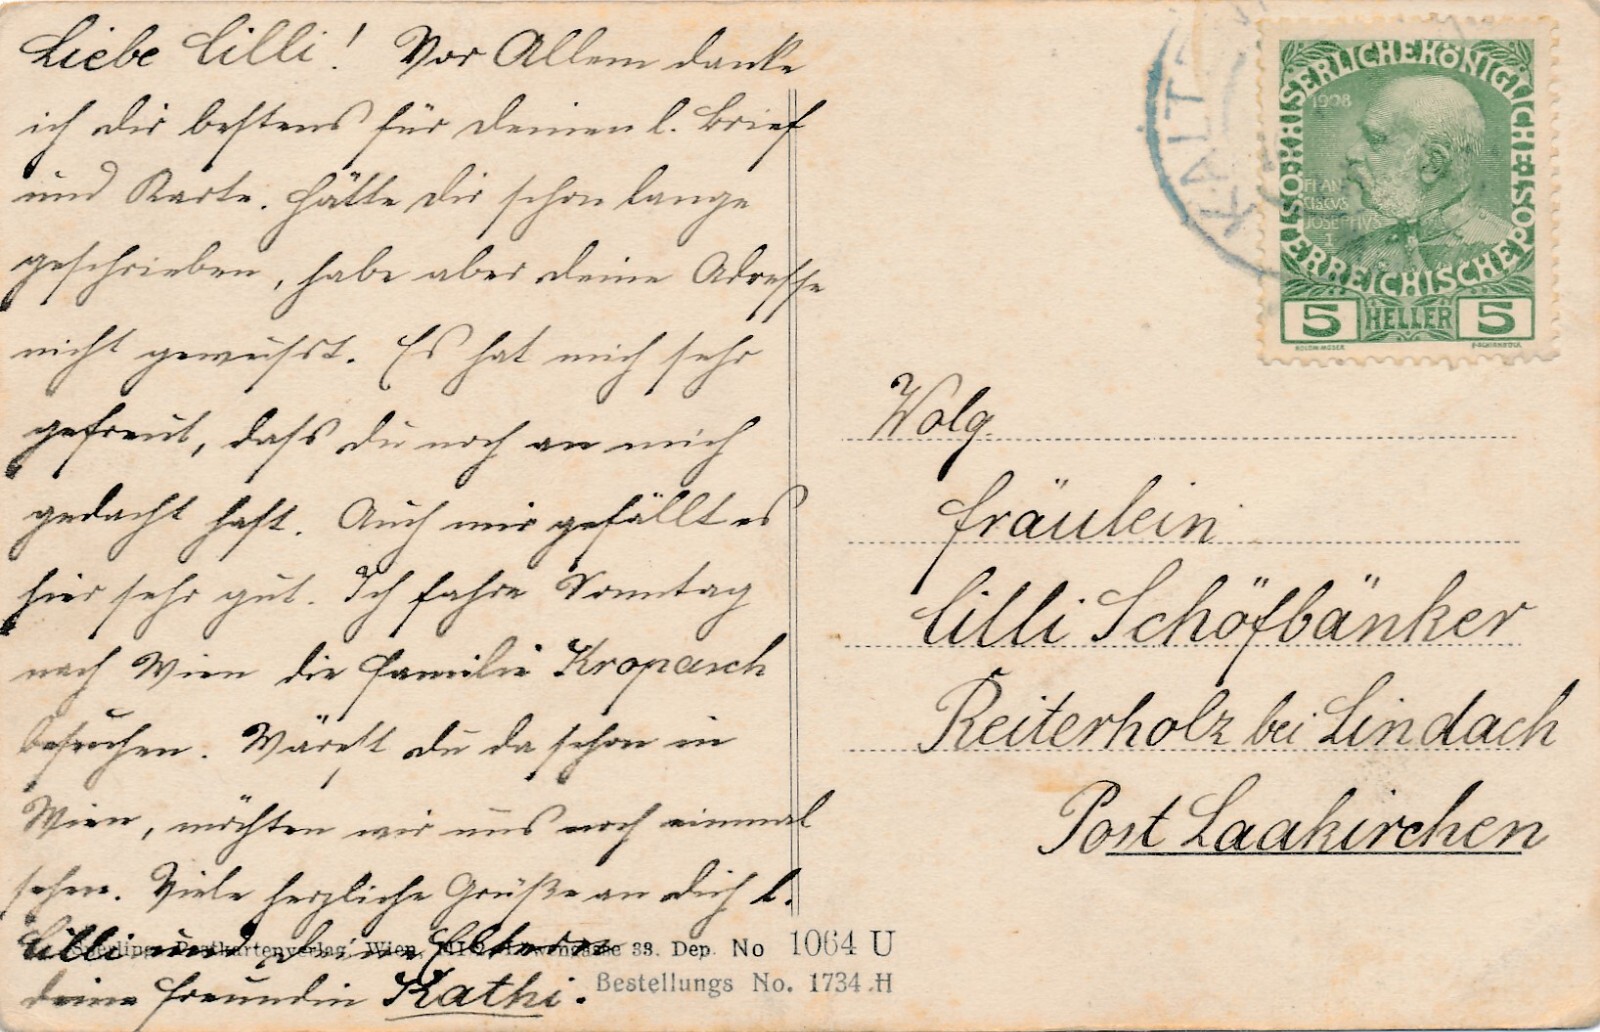 Liebe Cilli! Vor Allem danke
ich dir bestens für deinen l. Brief
und Karte. Hätte dir schon lange
geschrieben, habe aber deine Adresse
nicht gewußt. Es hat mich sehr
gefreut, daß du noch an mich
gedacht hast. Auch mir gefällt es
hier sehr gut. Ich fahre Sonntag
nach Wien die Familie Kropasch
besuchen. Wärest du da schon in
Wien, möchten wir uns noch einmal
sehen. Viele herzliche Grüße an dich l.
Cilli und deine Eltern
deine Freundin Kathi.
Postkartenverlag, Wien, 33. Dep. No 1064 U
Bestellungs No. 1734 H
KALT
KAISERLICHE KÖNIGLICHE ÖSTERREICHISCHE POST
1908
FRANCISCVS
JOSEPHVS
I
5 HELLER 5
KOLOM·MOSER
F·SCHIRNBÖCK
Wolg.
Fräulein
Cilli Schöfbänker
Reiterholz bei Lindach
Post Laakirchen